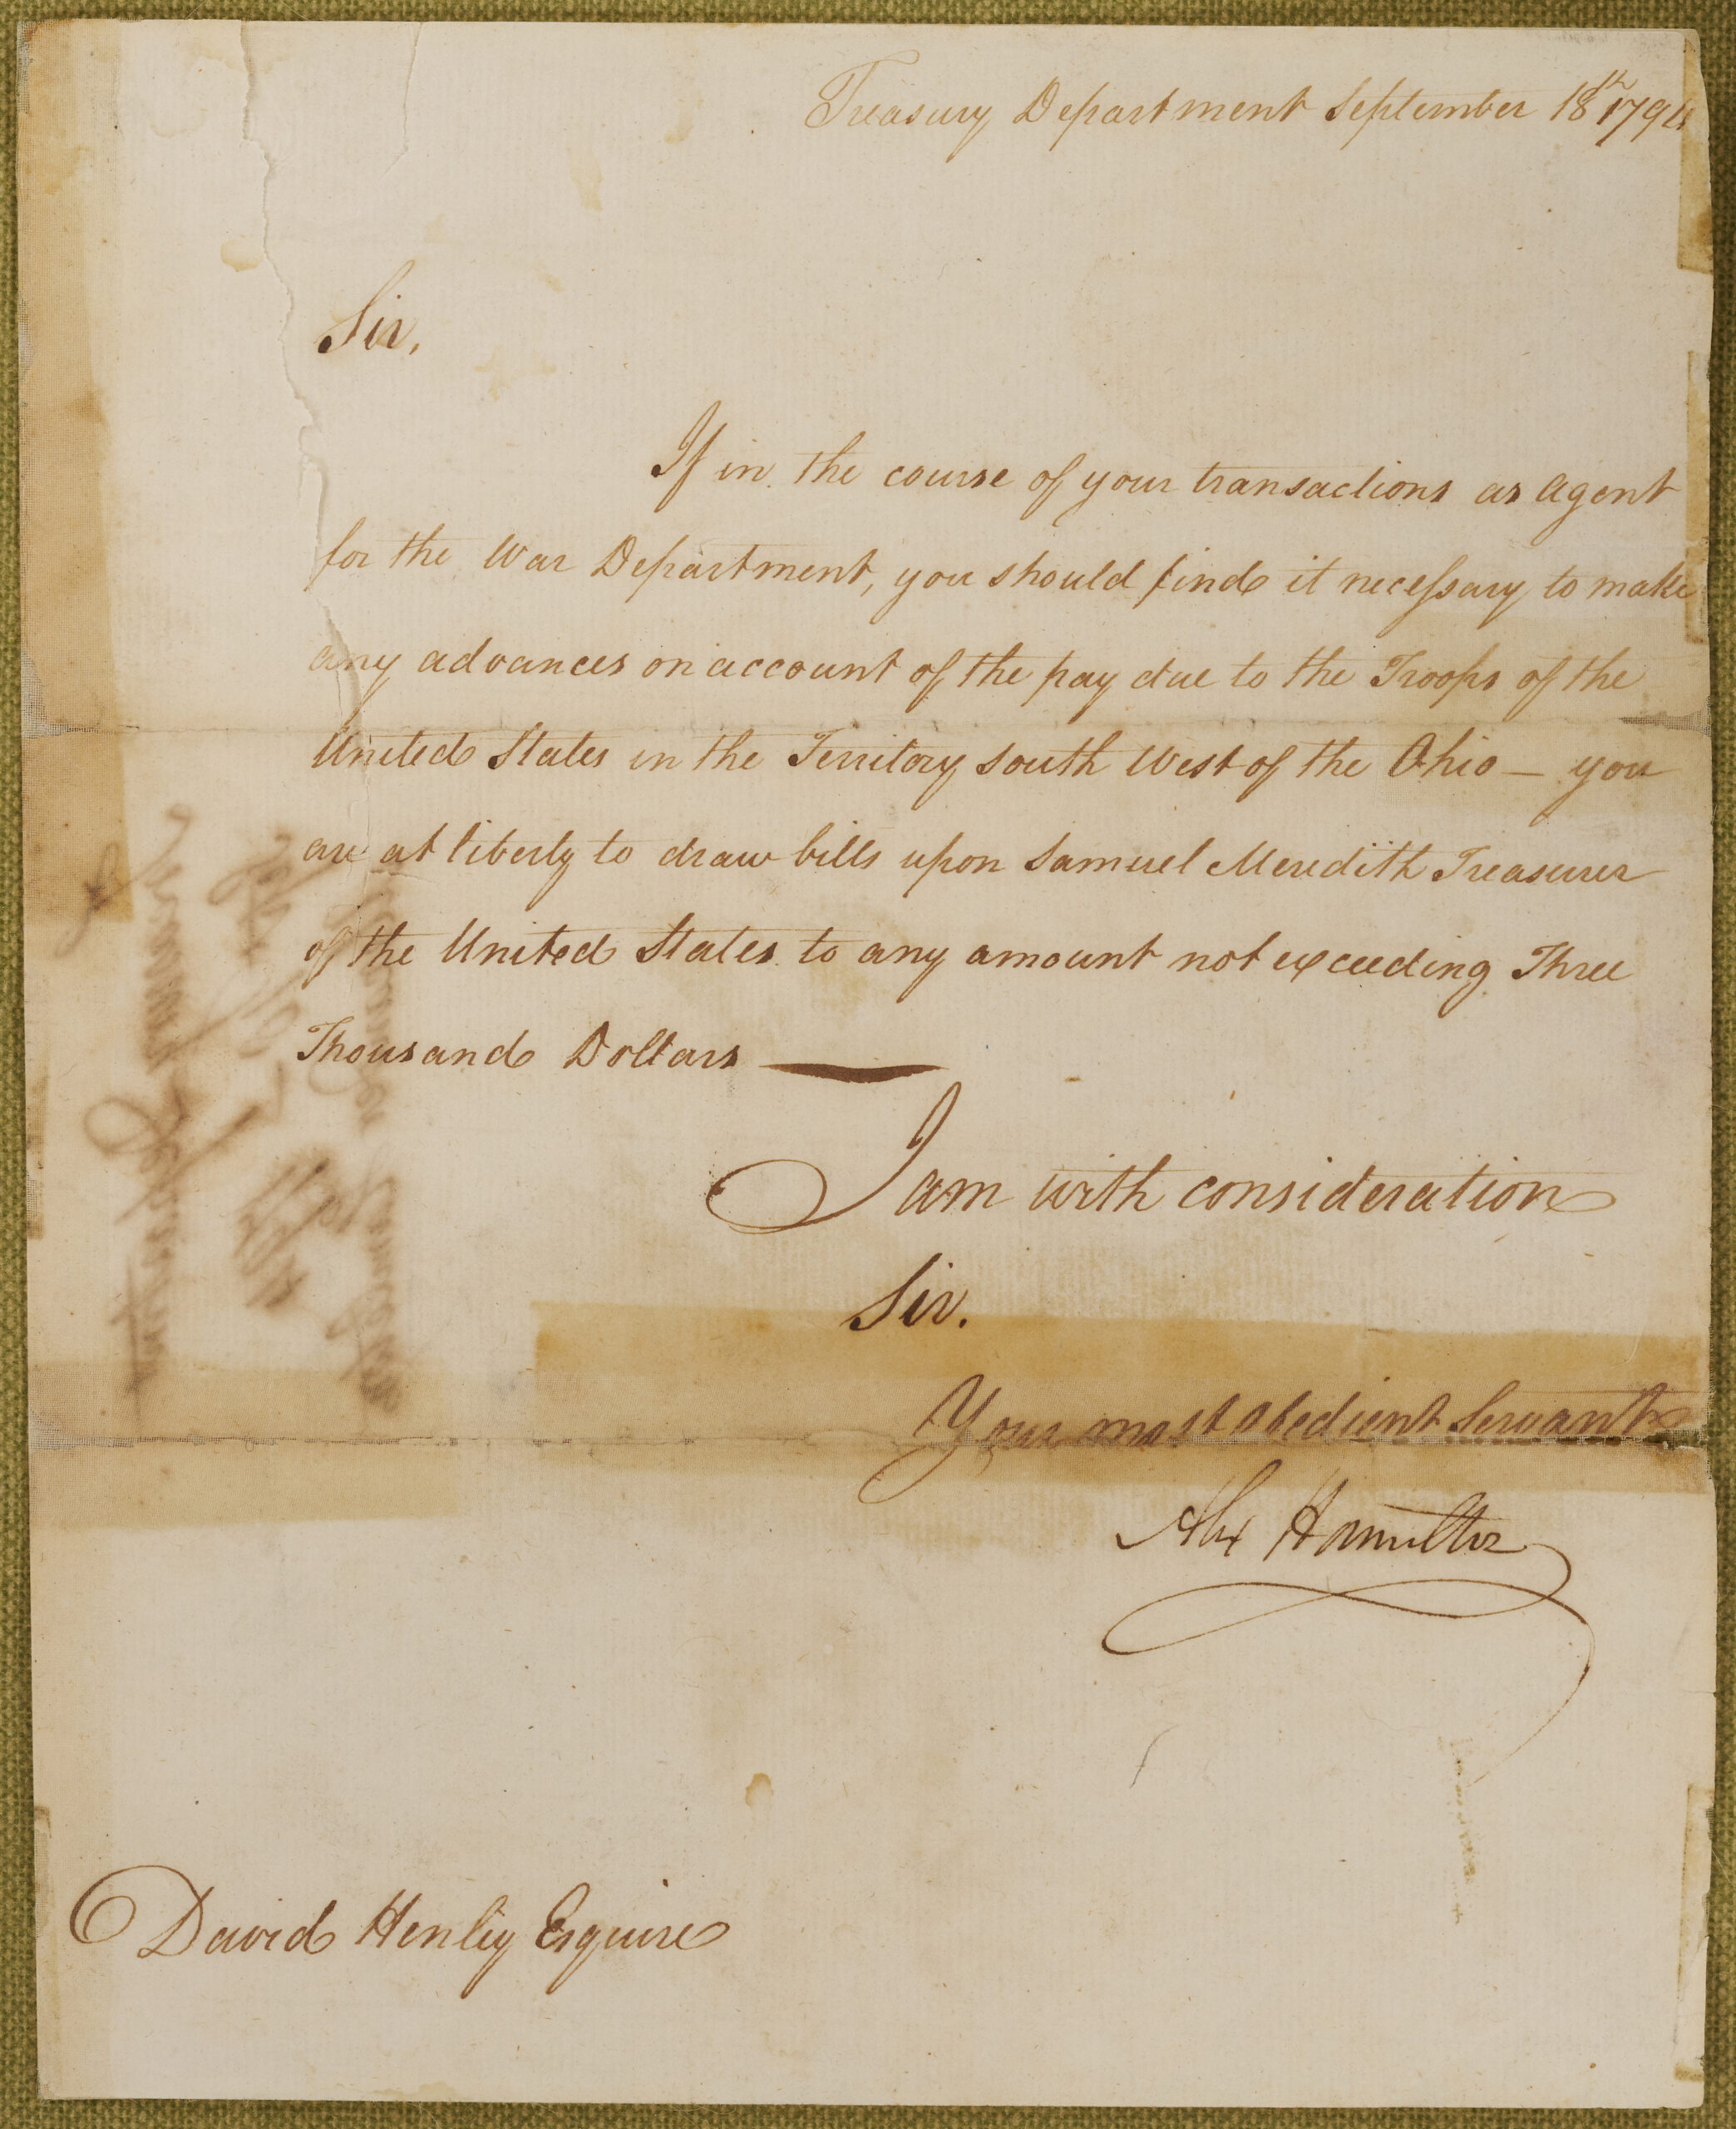 Treasury Department September 18th 1794
Sir,
If in the course of your transactions as Agent
for the War Department, you should find it necessary to make
any advances on account of the pay due to the Troops of the
United States in the Territory south West of the Ohio — you
are at liberty to draw bills upon Samuel Meredith Treasurer
of the United States to any amount not exceeding Three
Thousand Dollars —
I am with consideration
Sir.
Your most obedient Servant
Alex Hamilton
David Henley Esquire